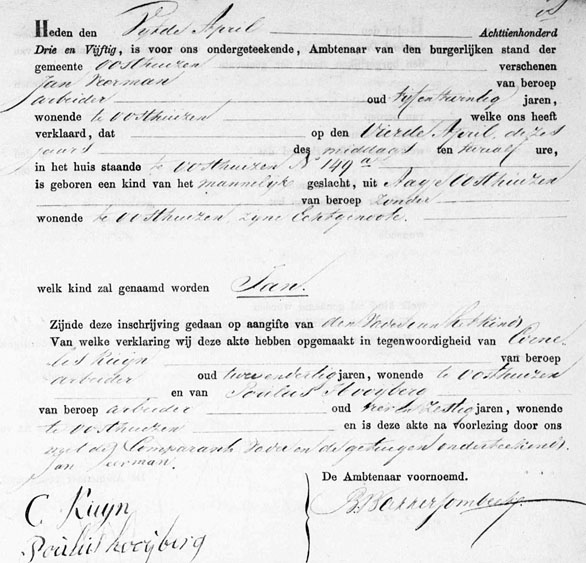 Heden den Vijfde April Achttienhonderd
Drie en Vijftig, is voor ons ondergeteekende, Ambtenaar van den burgerlijken stand der
gemeente Oosthuizen verschenen
Jan Veerman van beroep
arbeider oud vijfentwintig jaren,
wonende te Oosthuizen welke ons heeft
verklaard, dat op den Vierde April dezes
jaars des middags ten twaalf ure,
in het huis staande te Oosthuizen No 149a
is geboren een kind van het mannelijk geslacht, uit Aagje Oosthuizen
van beroep Zonder
wonende te Oosthuizen zijne Echtgenoote.
welk kind zal genaamd worden Jan.
Zijnde deze inschrijving gedaan op aangifte van den Vader van het kind
Van welke verklaring wij deze akte hebben opgemaakt in tegenwoordigheid van Corne
lis Kuijn van beroep
arbeider oud tweeendertig jaren, wonende te Oosthuizen
en van Poulus Kooyberg
van beroep arbeider oud zestig jaren, wonende
te Oosthuizen en is deze akte na voorlezing door ons
Comparant Vader en de getuigen onderteekend.
Jan Veerman.
De Ambtenaar voornoemd.
C. Kuijn
Poulus Kooijberg